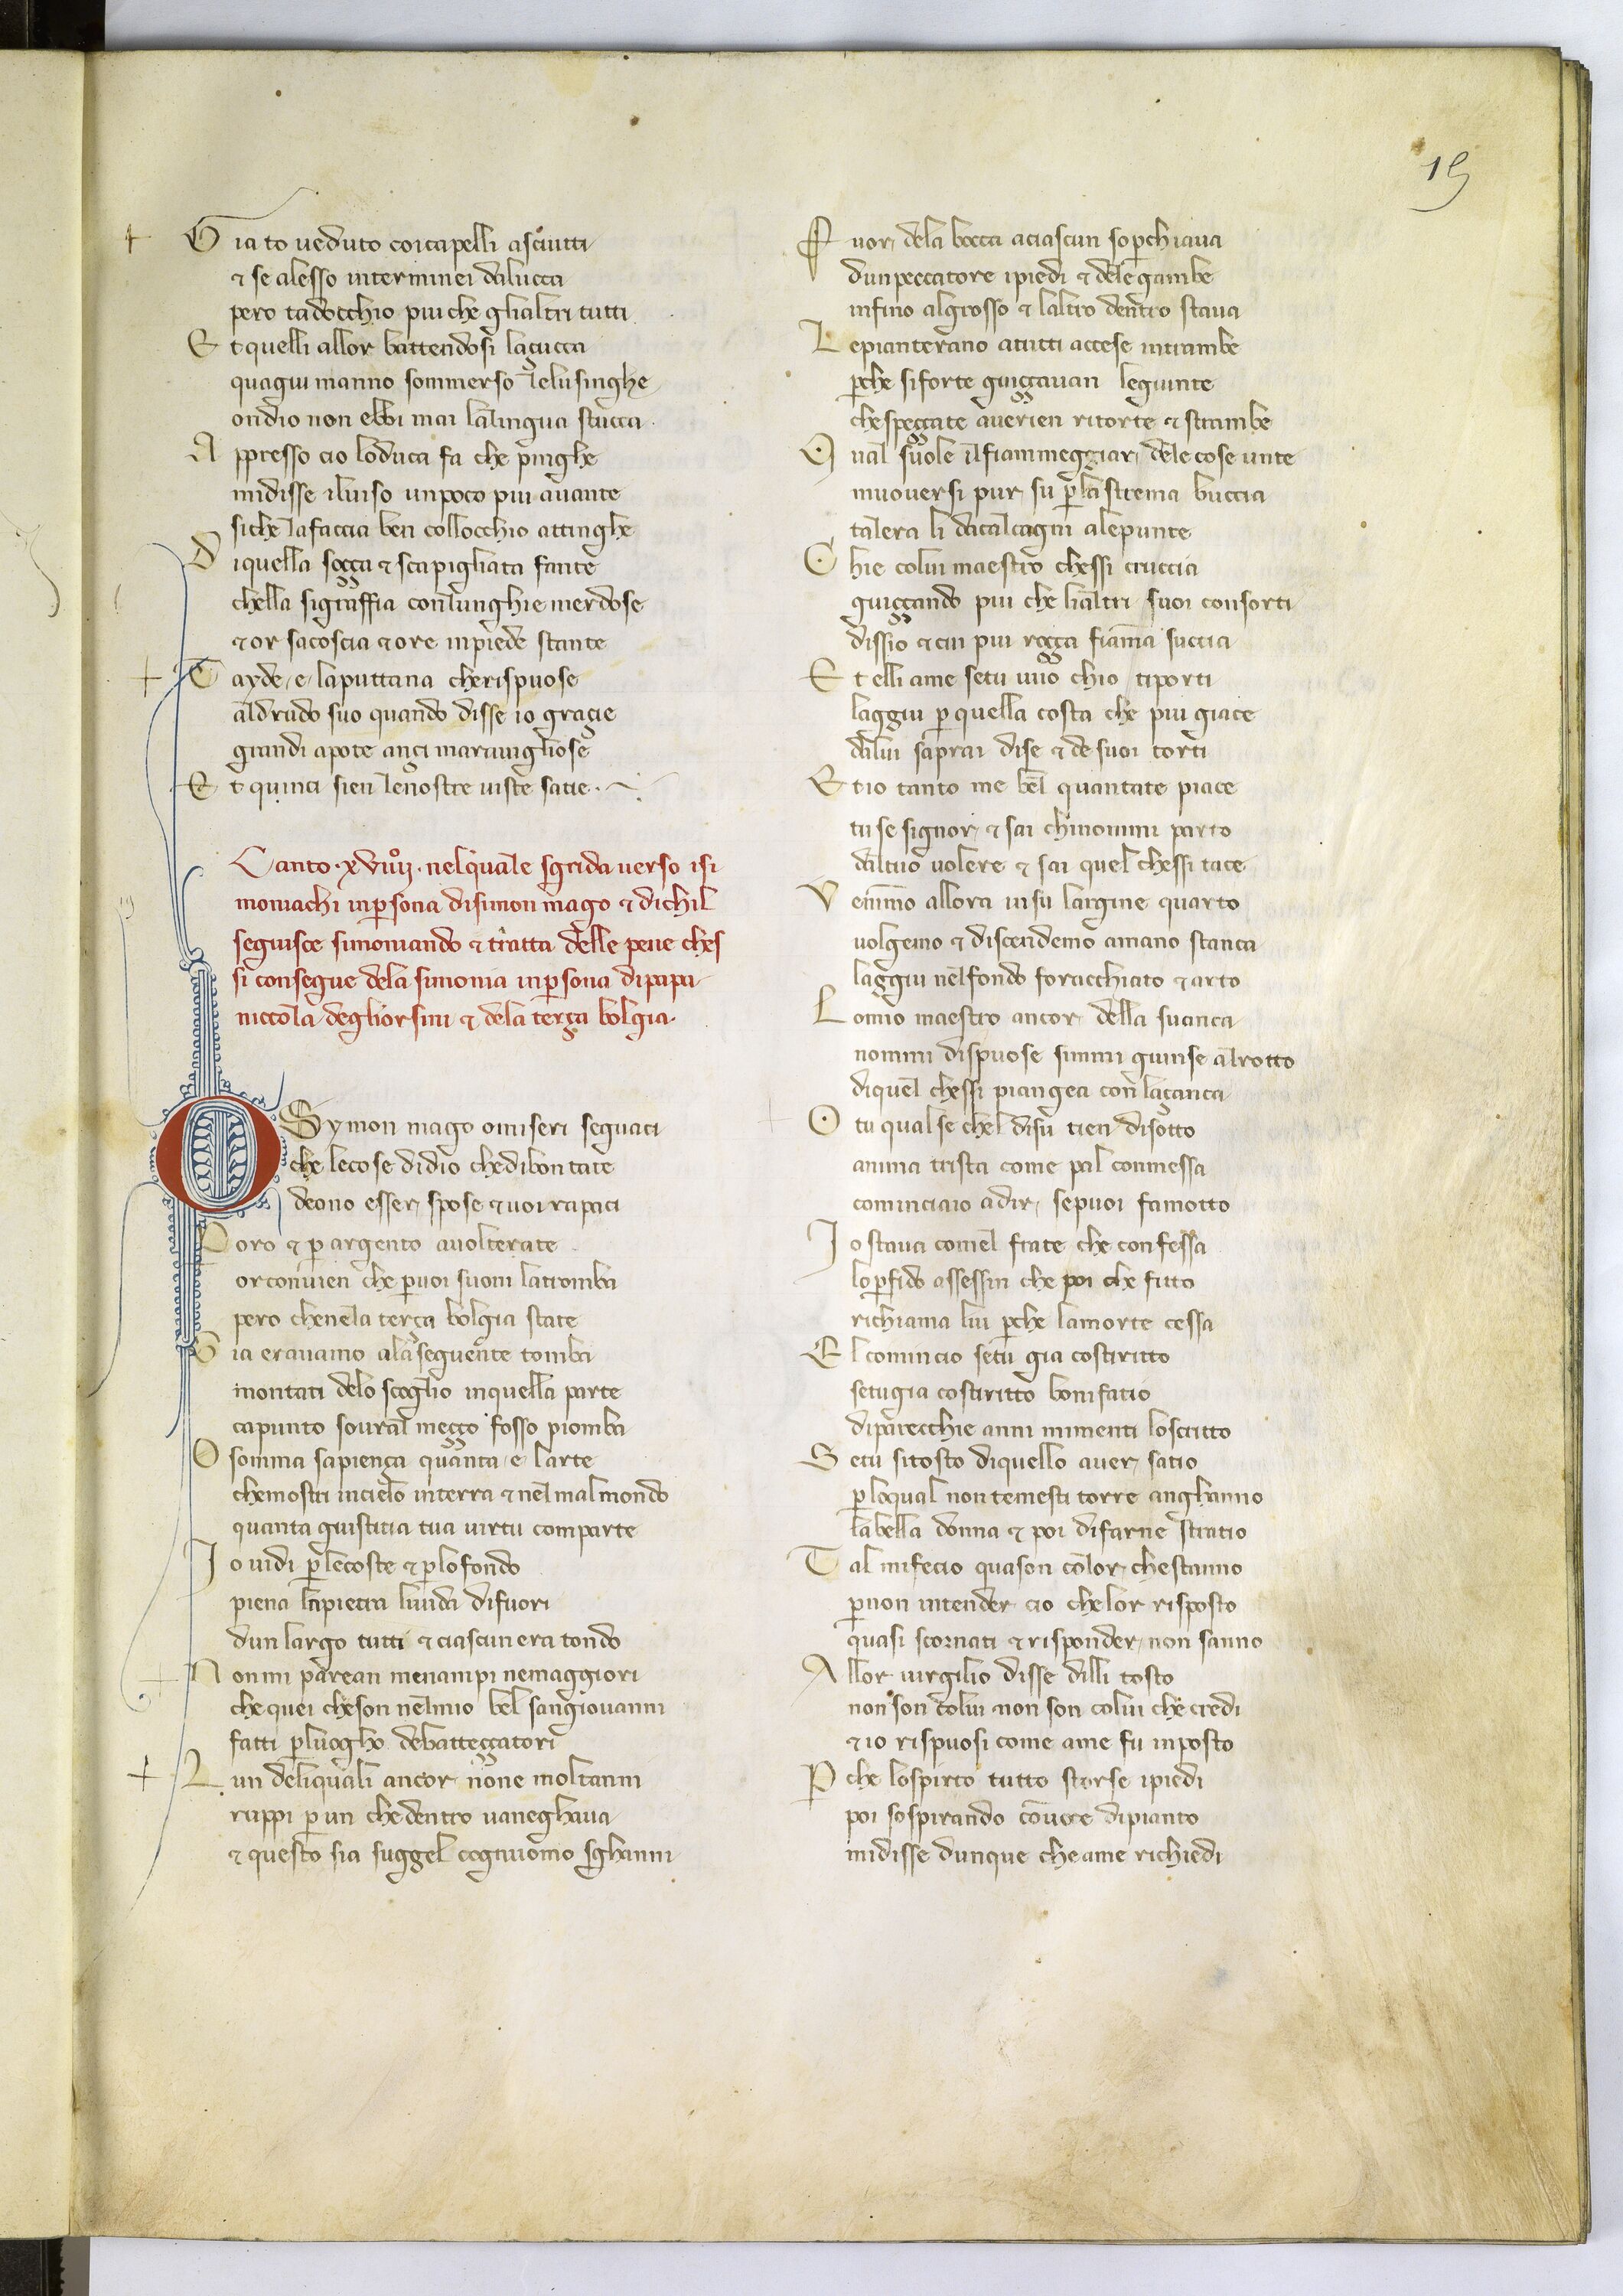 15
Gia to ueduto coi capelli asciutti
⁊ se alesso interminei dalucca
pero tadocchio piu che glialtri tutti
Et quelli allor battendosi laçucca
quagiu manno sommerso lelusinghe
ondio non ebbi mai lalingua stucca
Appresso cio loduca fa che pinghe
midisse iluiso unpoco piu auante
siche lafaccia ben collocchio attinghe
Diquella soçça ⁊ scapigliata fante
chella sigraffia conlunghie merdose
⁊ or sacoscia ⁊ ore inpiede stante
Tayde e laputtana cherispuose
aldrudo suo quando disse io graçie
grandi apote ançi marauigliose
Et quinci sien lenostre uiste satie
Canto xviiii nelquale sgrida uerso isi
moniachi inpersona disimon mago ⁊ dichil
seguisce simoniando ⁊ tratta delle pene ches
si consegue dela simonia inpersona dipapa
niccola degliorsini ⁊ dela terça bolgia
O Symon mago omiseri seguaci
che lecose didio chedibontate
deono esser spose ⁊ uoi rapaci
Poro ⁊ p argento auolterate
orconuien che peruoi suoni latromba
pero chenela terça bolgia state
Gia erauamo alaseguente tomba
montati delo scoglio inquella parte
capunto soural meçço fosso piomba
O somma sapiença quanta e larte
chemostri incielo interra ⁊ nel mal mondo
quanta giustitia tua uirtu comparte
Io uidi p lecoste ⁊ p lofondo
piena lapietra liuida difuori
dun largo tutti ⁊ ciascun era tondo
Non mi parean menampi nemaggiori
che quei cheson nelmio bel sangiouanni
fatti p luogho debatteççatori
Lun deliquali ancor none moltanni
ruppi p un chedentro uaneghaua
⁊ questo sia suggel cognuomo sghanni
Fuor dela bocca aciascun soperchiaua
dunpeccatore ipiedi ⁊ dele gambe
infino algrosso ⁊ laltro dentro staua
Lepianterano atutti accese intrambe
perche siforte guiççauan legiunte
chespeççate auerien ritorte ⁊ strambe
Qual suole ilfiammeggiar dele cose unte
muouersi pur su p lastrema buccia
talera li dacalcagni alepunte
Chie colui maestro chessi cruccia
guiççando piu che lialtri suoi consorti
dissio ⁊ cui piu roçça fiamma succia
Et elli ame setu uuo chio tiporti
laggiu p quella costa che piu giace
dalui saprai dise ⁊ de suoi torti
Et io tanto me bel quantate piace
tu se signor ⁊ sai chinonmi parto
daltuo uolere ⁊ sai quel chessi tace
Venimmo allora insu largine quarto
uolgemo ⁊ discendemo amano stanca
laggiu nelfondo foracchiato ⁊ arto
Lomio maestro ancor della suanca
nonmi dispuose simmi giunse alrotto
diquel chessi piangea con laçanca
O tu qualse chel disu tien disotto
anima trista come pal conmessa
cominciaio adir sepuoi famotto
Io staua comel frate che confessa
loperfido assessin che poi che fitto
richiama lui perche lamorte cessa
El comincio setu gia costiritto
setugia costiritto bonifatio
diparecchie anni mimenti loscritto
Setu sitosto diquello auer satio
p loqual nontemesti torre anghanno
labella donna ⁊ poi difarne stratio
Tal mifecio quason color chestanno
p non intender cio chelor risposto
quasi scornati ⁊ risponder non sanno
Allor uirgilio disse dilli tosto
non son colui non son colui che credi
⁊ io rispuosi come ame fu inposto
Pche lospirto tutto storse ipiedi
poi sospirando con uoce dipianto
midisse dunque cheame richiedi